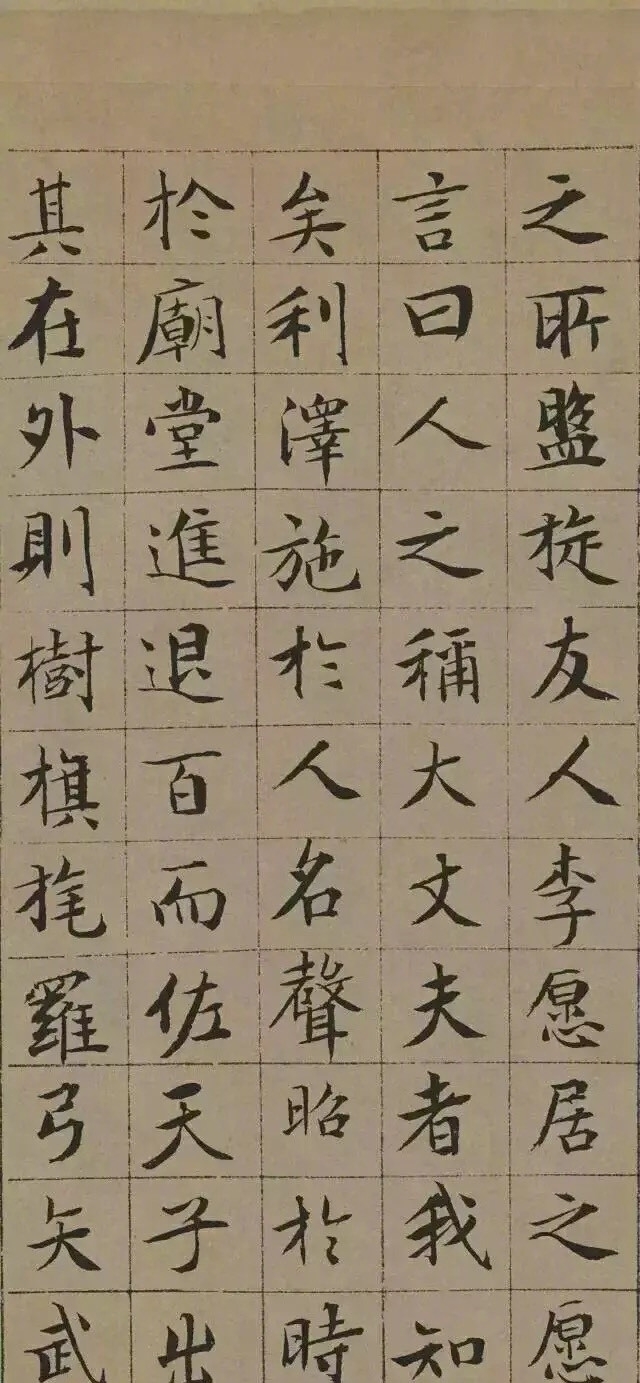 之所盤旋友人李愿居之愿
言曰人之稱大丈夫者我知
矣利澤施於人名聲昭於時
於廟堂進退百而佐天子出
其在外則樹旗旄羅弓矢武